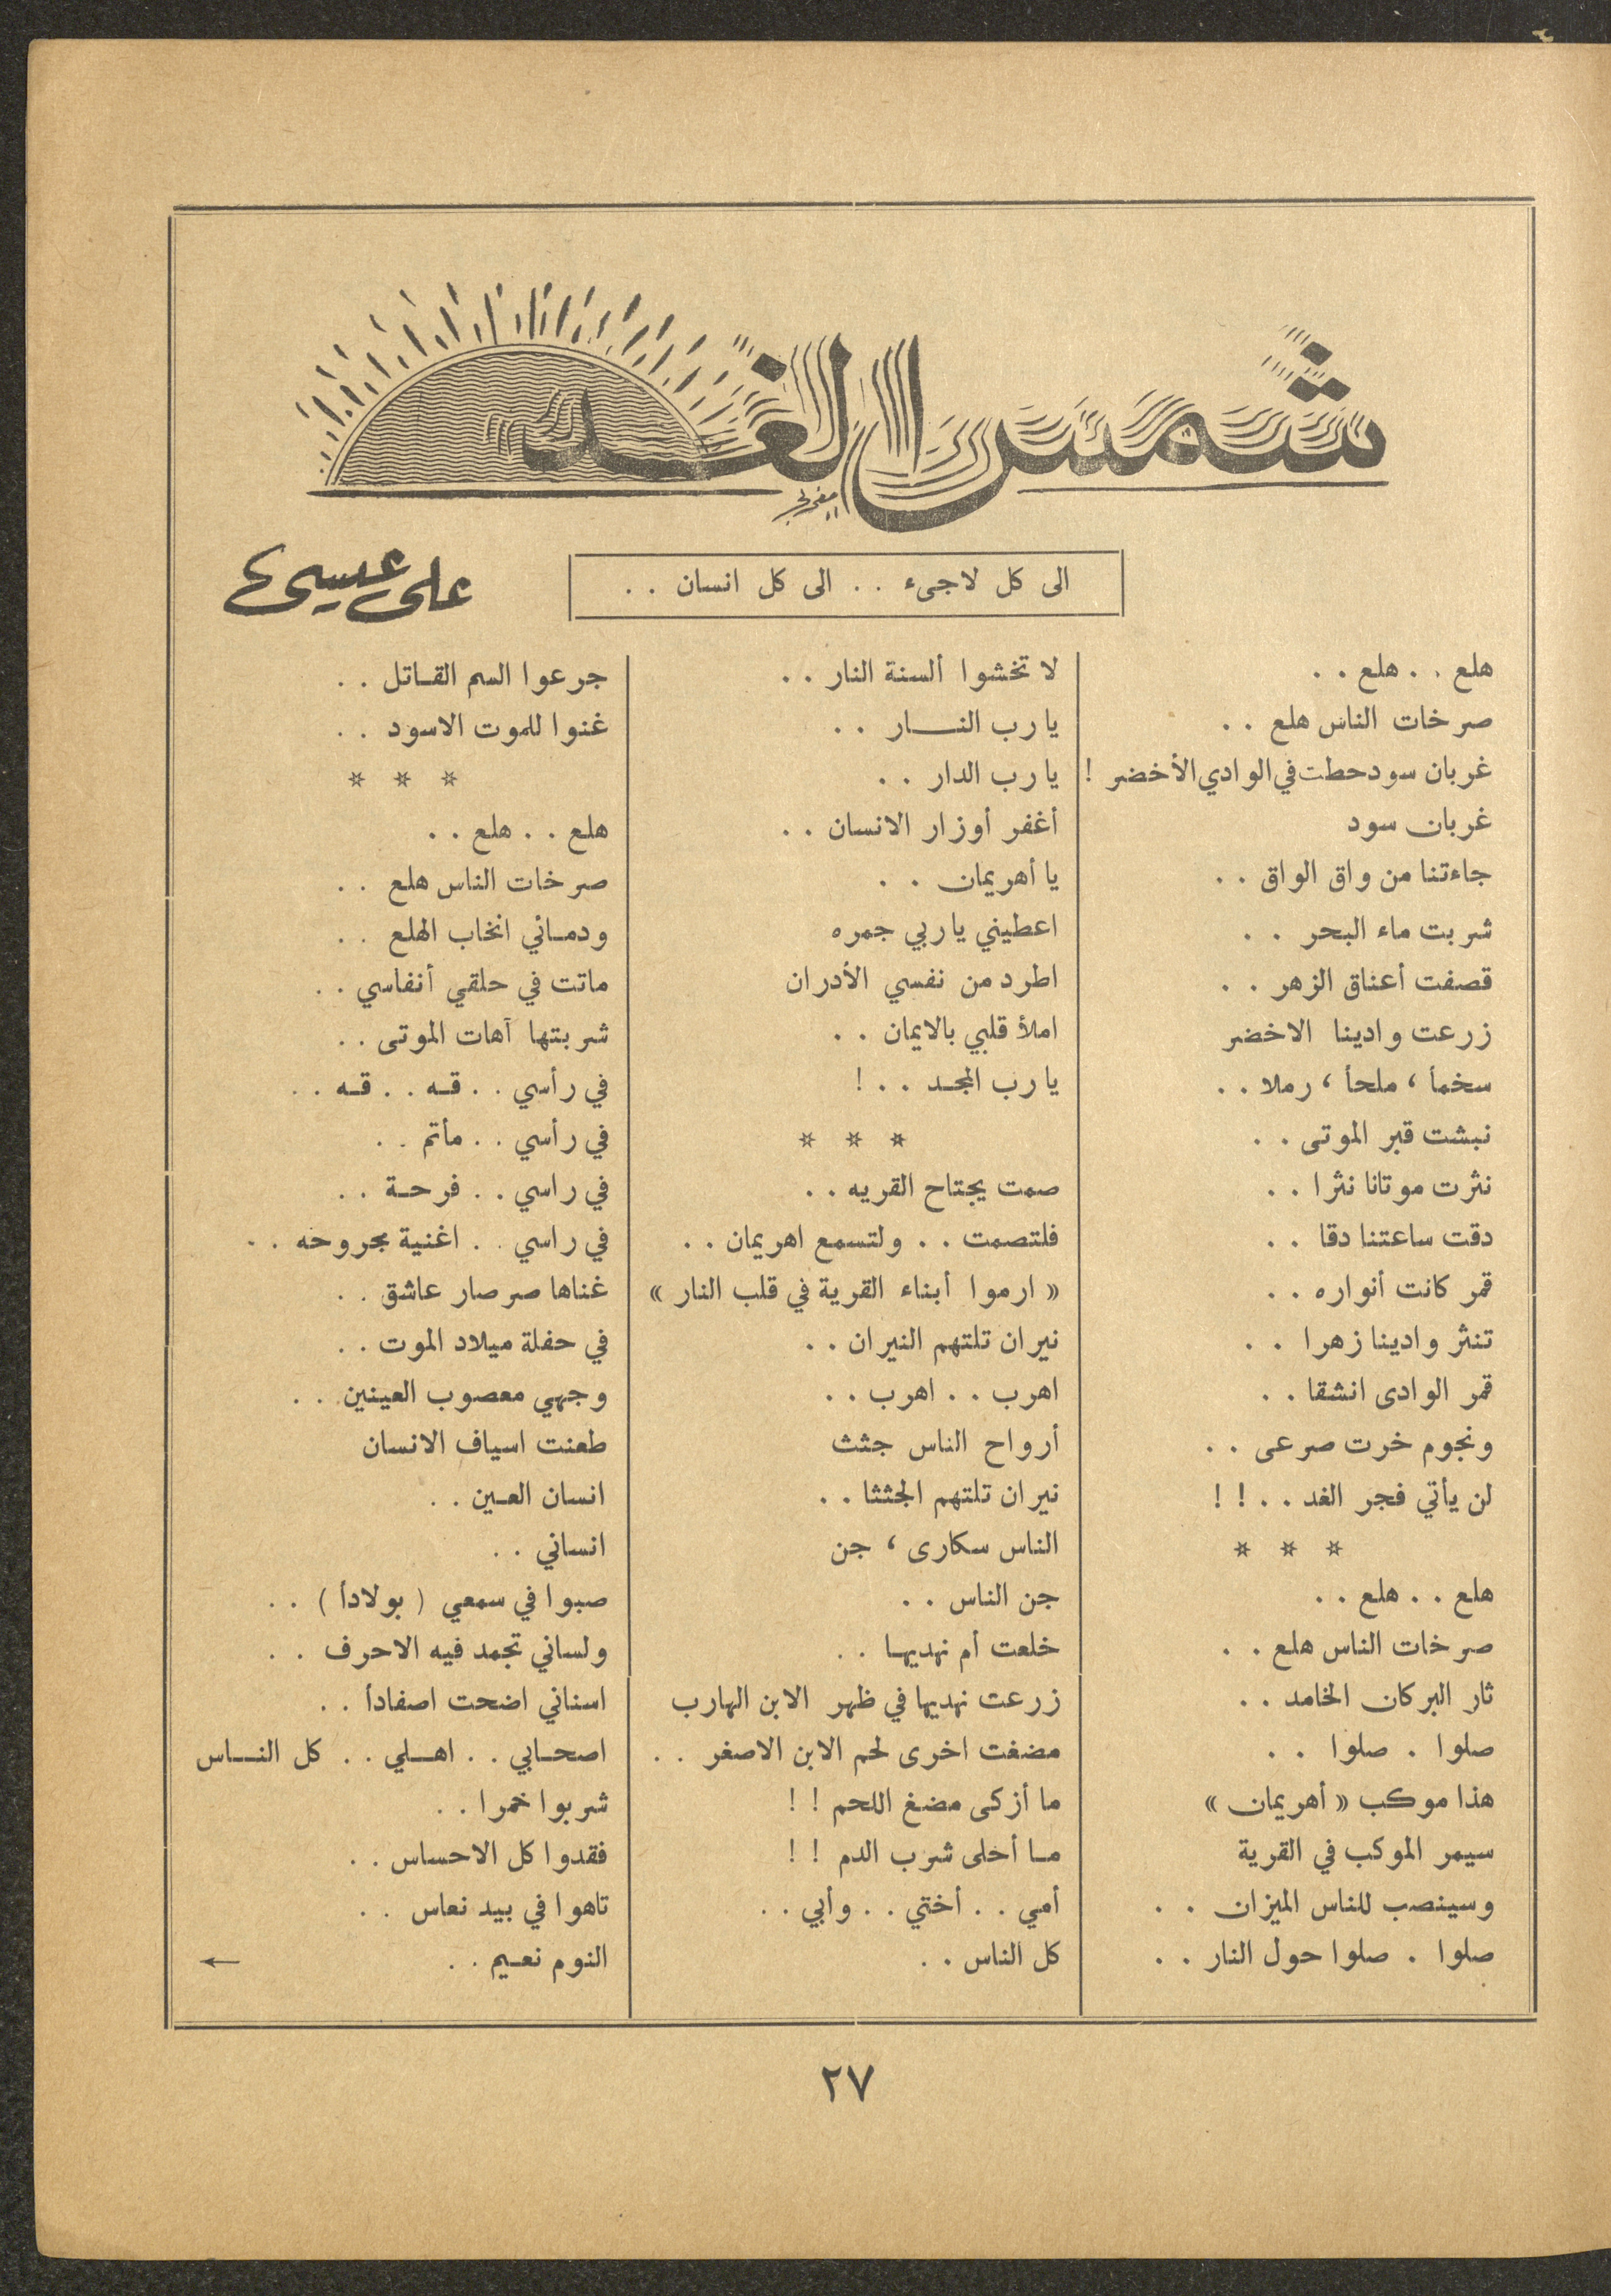 شمس الغد
علي عيسى
الى كل لاجىء . . الى كل انسان . .
هلع . . هلع . .
صرخات الناس هلع . .
غربان سود حطت في الوادي الأخضر !
غربان سود
جاءتنا من واق الواق . .
شربت ماء البحر . .
قصفت أعناق الزهر . .
زرعت وادينا الاخضر
سخماً ، ملحاً ، رملا . .
نبشت قبر الموتى . .
نثرت موتانا نثرا . .
دقت ساعتنا دقا . .
قمر كانت أنواره . .
تنثر وادينا زهرا . .
قمر الوادى انشقا . .
ونجوم خرت صرعى . .
لن يأتي فجر الغد . . ! !
* * *
هلع . . هلع . .
صرخات الناس هلع . .
ثار البركان الخامد . .
صلوا . صلوا . .
هذا موكب « أهريمان »
سيمر الموكب في القرية
وسينصب للناس الميزان . .
صلوا . صلوا حول النار . .
لا تخشوا ألسنة النار . .
يا رب النـــار . .
يا رب الدار . .
أغفر أوزار الانسان . .
يا أهريمان . .
اعطيني ياربي جمره
اطرد من نفسي الأدران
املأ قلبي بالايمان . .
يا رب المجـد . . !
* * *
صمت يجتاح القريه . .
فلتصمت . . ولتسمع اهريمان . .
« ارموا أبناء القرية في قلب النار »
نيران تلتهم النيران . .
اهرب . . اهرب . .
أرواح الناس جثث
نيران تلتهم الجثثا . .
الناس سكارى ، جن
جن الناس . .
خلعت أم نهديهـا . .
زرعت نهديها في ظهر الابن الهارب
مضغت اخرى لحم الابن الاصغر . .
ما أزكى مضغ اللحم ! !
مـا أخلى شرب الدم ! !
أمي . . أختي . . وأبي . .
كل الناس . .
جرعوا السم القـاتل . .
غنوا للموت الاسود . .
* * *
هلع . . هلع . .
صرخات الناس هلع . .
ودمـاني انخاب الهلع . .
ماتت في حلقي أنفاسي . .
شربتها آهات الموتى . .
في رأسي . . قـه . . قـه . .
في رأسي . . مأتم . .
في راسي . . فرحـة . .
في راسي . . اغنية مجروحه . .
غناها صرصار عاشق . .
في حفلة ميلاد الموت . .
وجهي معصوب العينين . .
طعنت اسياف الانسان
انسان العـين . .
انساني . .
صبوا في سمعي ( بولاداً ) . .
ولساني تجمد فيه الاحرف . .
اسناني اضحت اصفاداً . .
اصحـابي . . اهـلي . . كل النــاس
شربوا خمرا . .
فقدوا كل الاحساس . .
تاهوا في بيد نعاس . .
النوم نعـيم . . ←
٢٧